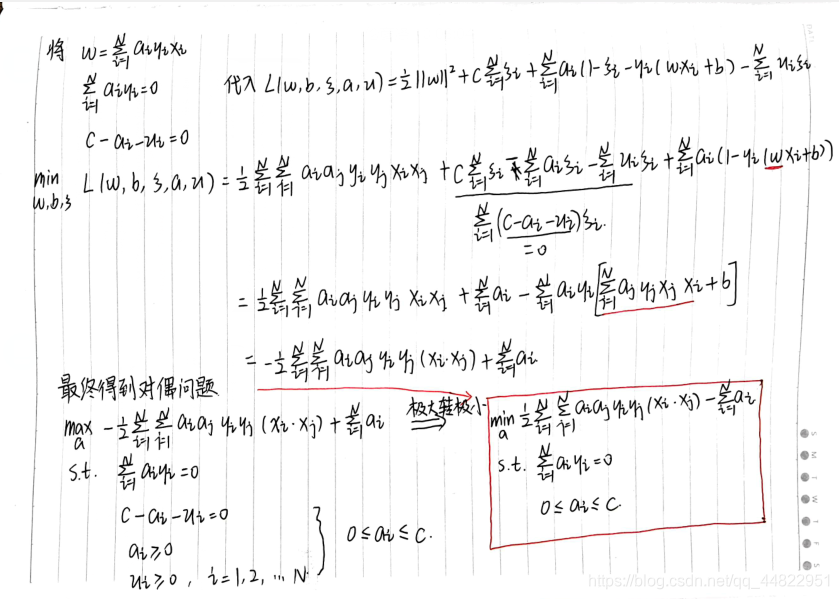 将 w=∑_{i=1}^{N} aiyixi
∑_{i=1}^{N} aiyi=0
代入 L(w,b,ξ,a,u)=½||w||²+C∑_{i=1}^{N}ξi+∑_{i=1}^{N}ai(1-ξi-yi(wxi+b)-∑_{i=1}^{N}uiξi
C-ai-ui=0
min_{w,b,ξ} L(w,b,ξ,a,u)=½∑_{i=1}^{N}∑_{j=1}^{N} aiajyiyjxixj+C∑_{i=1}^{N}ξi-∑_{i=1}^{N}aiξi-∑_{i=1}^{N}uiξi+∑_{i=1}^{N}ai(1-yi(wxi+b))
∑_{i=1}^{N}(C-ai-ui)ξi.
=0
=½∑_{i=1}^{N}∑_{j=1}^{N} aiajyiyjxixj+∑_{i=1}^{N}ai-∑_{i=1}^{N}aiyi[∑_{j=1}^{N}ajyjxjxi+b]
=-½∑_{i=1}^{N}∑_{j=1}^{N}aiajyiyj(xi·xj)+∑_{i=1}^{N}ai
最终得到对偶问题
max_{a} -½∑_{i=1}^{N}∑_{j=1}^{N}aiajyiyj(xi·xj)+∑_{i=1}^{N}ai
s.t. ∑_{i=1}^{N}aiyi=0
C-ai-ui=0
ai≥0
ui≥0, i=1,2,…N
0≤ai≤C.
极大转极小
min_{a} ½∑_{i=1}^{N}∑_{j=1}^{N}aiajyiyj(xi·xj)-∑_{i=1}^{N}ai
s.t. ∑_{i=1}^{N}aiyi=0
0≤ai≤C.
S
M
T
W
T
F
S
https://blog.csdn.net/qq_44822951